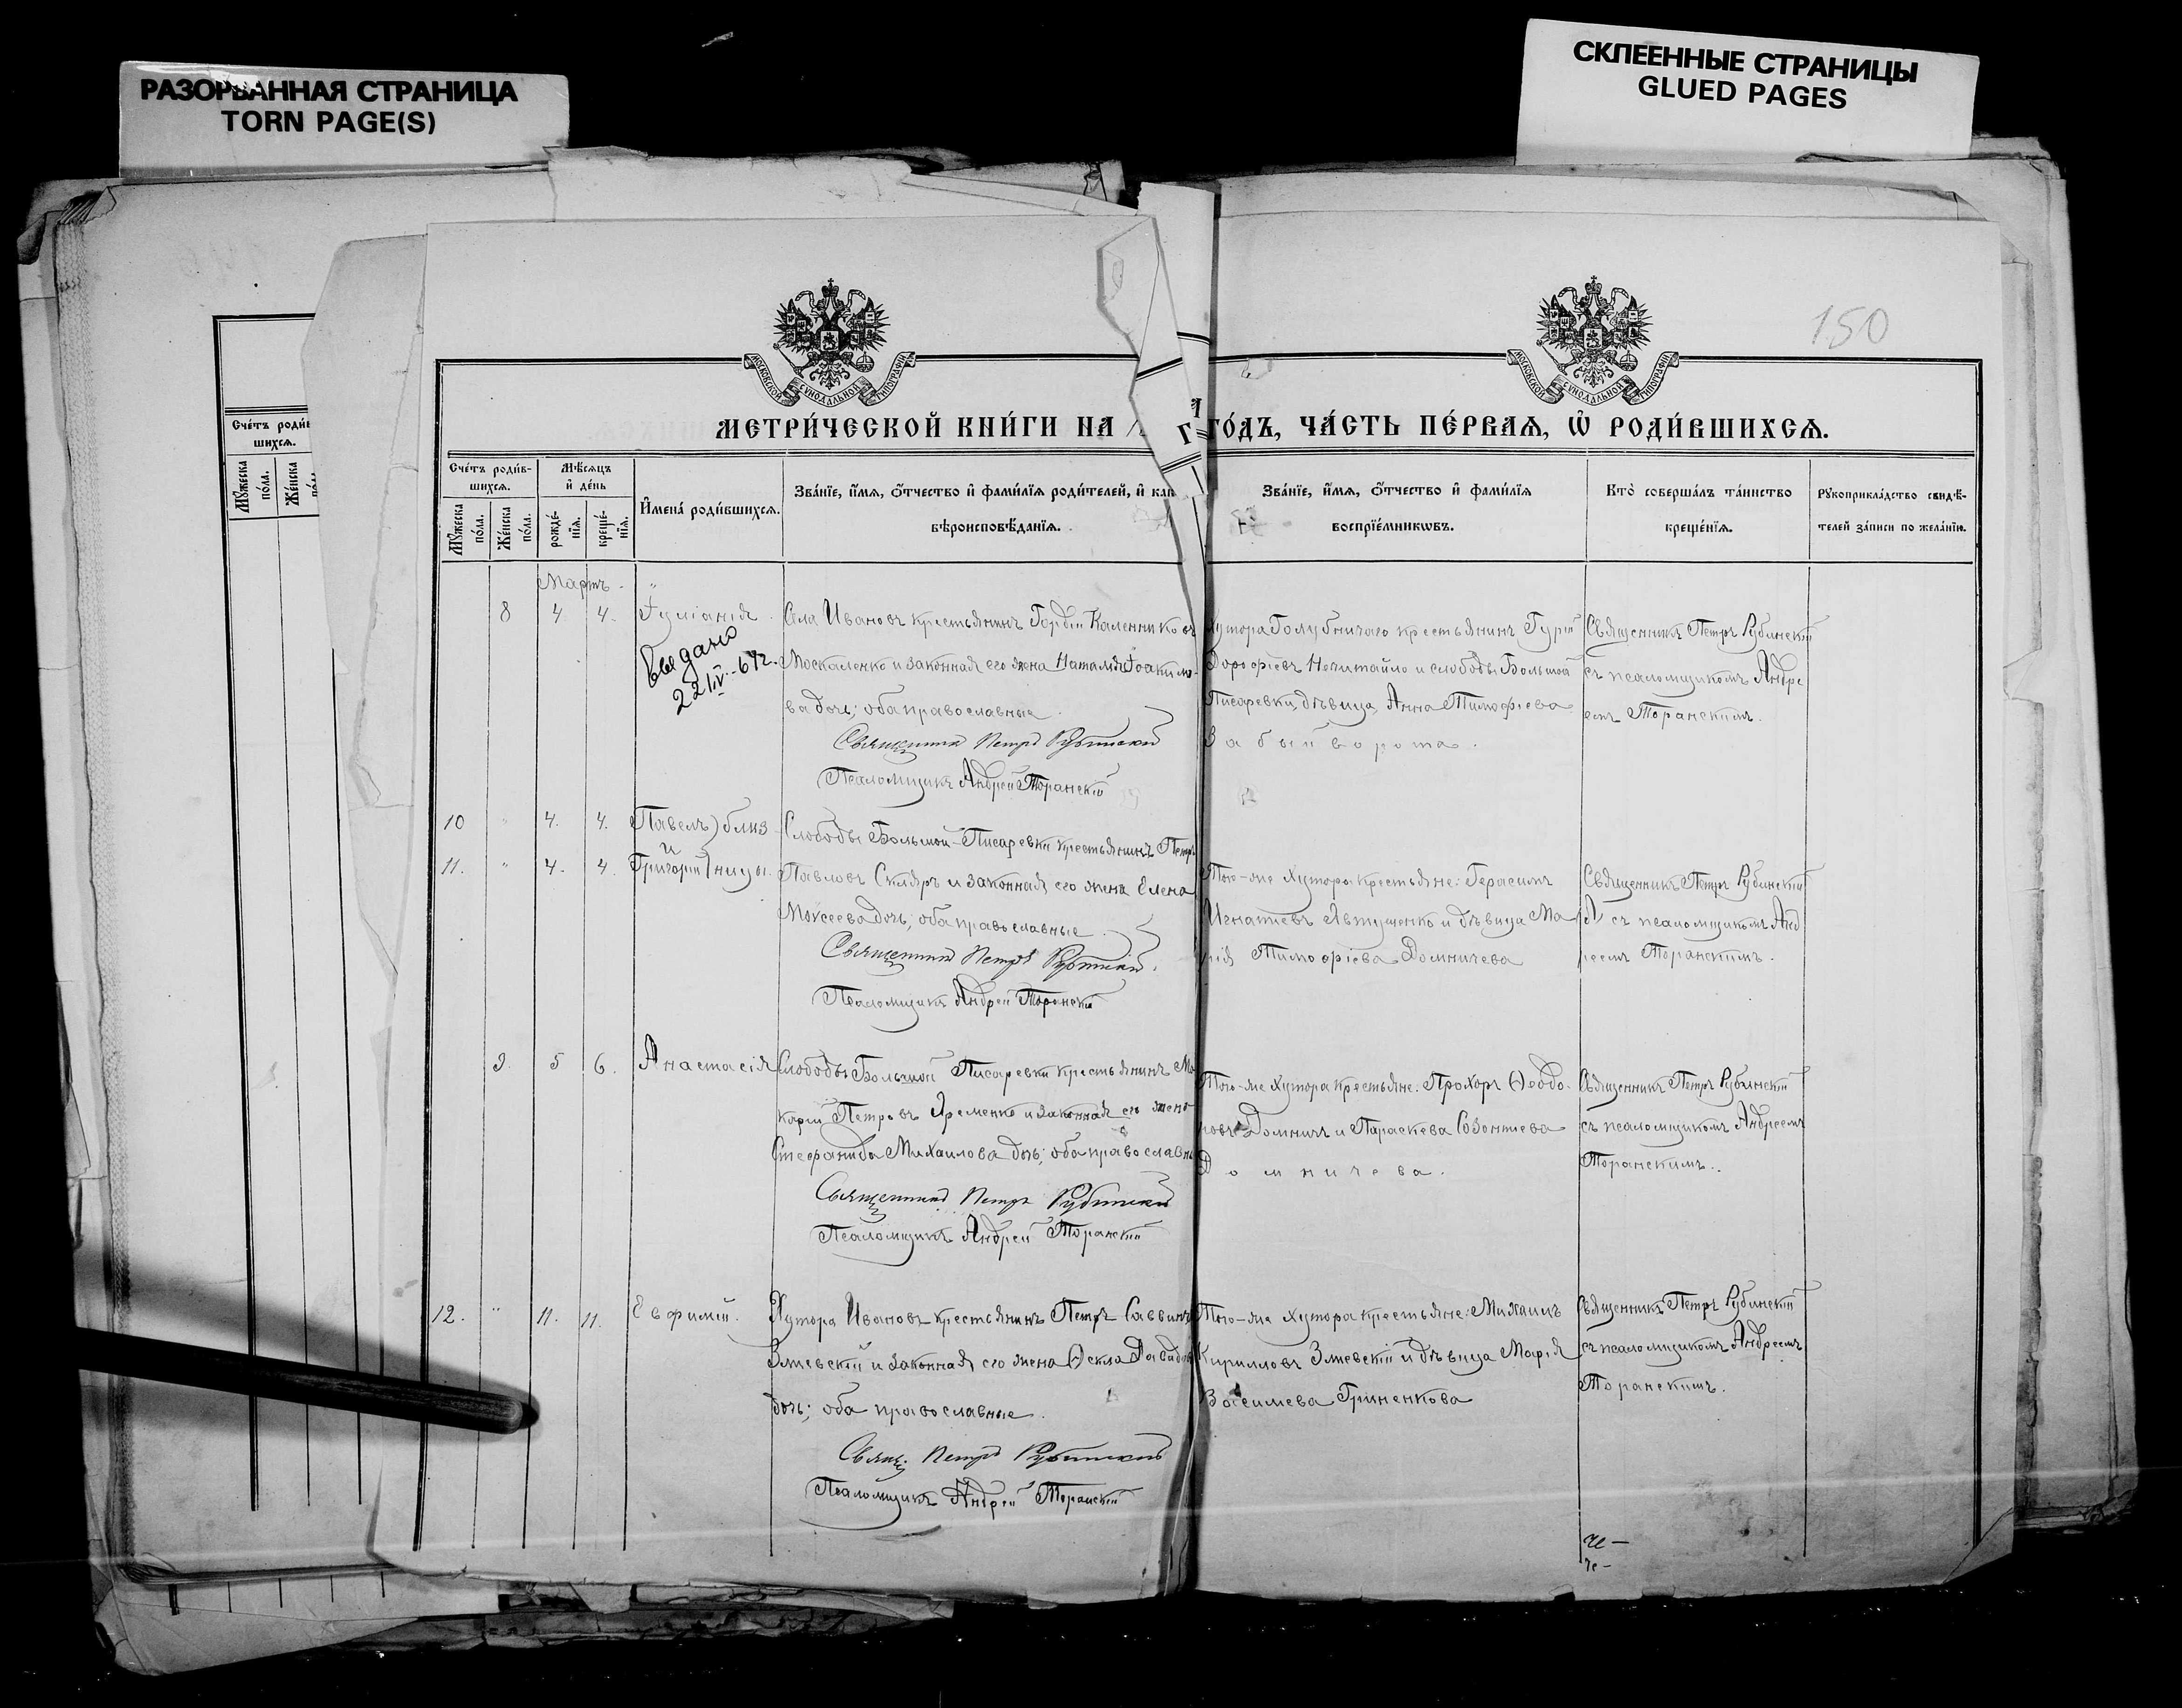 РАЗОРВАННАЯ СТРАНИЦА
TORN PAGE(S)
СКЛЕЕННЫЕ СТРАНИЦЫ
GLUED PAGES
150
МОСКОВСКОЙ СУНОДАЛЬНОЙ ТИПОГРАФІИ
МОСКОВСКОЙ СУНОДАЛЬНОЙ ТИПОГРАФІИ
МЕТРИ́ЧЕСКОЙ КНИ́ГИ НА
ГО́ДЪ, ЧА́СТЬ ПЕ́РВАѦ, Ѡ҆ РОДИ́ВШИХСѦ.
Сче́тъ роди́в-
шихсѧ.
Мꙋ́жеска по́ла.
Же́нска по́ла.
Мѣ́сѧцъ
и҆ де́нь
рожде́-
нїѧ.
креще́-
нїѧ.
И҆мена̀ роди́вшихсѧ.
Зва́нїе, и҆́мѧ, ѻ҆́тчество и҆ фами́лїѧ роди́телей, и҆ как
вѣроисповѣ́данїѧ.
Зва́нїе, и҆́мѧ, ѻ҆́тчество и҆ фами́лїѧ
воспрїе́мникѡвъ.
Кто̀ соверша́лъ та́инство
креще́нїѧ.
Рꙋкоприкла́дство свидѣ́-
телей за́писи по жела́нїю.
Мартъ
8 4 4. Іуліанія
Выдано
22/IV-642.
Села Ивановъ крестьянинъ Гордій Каленниковъ
Москаленко и законная его жена Наталія Іоакимо-
ва дочь; оба православные
Священникъ Петръ Рубинскій
Псаломщикъ Андрей Торанскій
Хутора Голубничаго крестьянинъ Гурій
Дорофіевъ Нечитайло и слободы Большой
Писаревки, дѣвица Анна Тимофіева
Забыйворота.
Священникъ Петръ Рубинскій
съ псаломщикомъ Андре
емъ Торанскимъ.
10 " 4. 4. Павелъ) близ
и
11. " 4. 4. Григорій) нецы.
Слободы Большой-Писаревки крестьянинъ Петръ
Павловъ Скляръ и законная его жена Елена
Моѵсеева дочь; оба православные
Священникъ Петръ Рубинскій.
Псаломщикъ Андрей Торанскій
Того-же хутора крестьяне: Герасимъ
Игнатіевъ Явтушенко и дѣвица Ма
рія Тимофіева Домничева
Священникъ Петръ Рубинскій
съ псаломщикомъ Анд
реемъ Торанскимъ.
9. 5 6. Анастасія
Слободы Большой Писаревки крестьянинъ Ма
карій Петровъ Яременко и законная его жена
Стефанида Михаилова дочь; оба православн
Священникъ Петръ Рубинскій
Псаломщикъ Андрей Торанскій
Того-же хутора крестьяне: Прохоръ Ѳеодо-
ровъ Домничъ и Параскева Созонтіева
Домничева.
Священникъ Петръ Рубинскій
съ псаломщикомъ Андреемъ
Торанскимъ.
12. " 11. 11. Евфимій.
Хутора Ивановъ крестьянинъ Петръ Саввинъ
Змевскій и законная его жена Ѳекла Давидов
дочь; оба православные.
Свящ. Петръ Рубинскій
Псаломщикъ Андрей Торанскій
Того-же хутора крестьяне: Михаилъ
Кирилловъ Змевскій и дѣвица Марія
Гриненкова
Священникъ Петръ Рубинскій
съ псаломщикомъ Андреемъ
Торанскимъ.